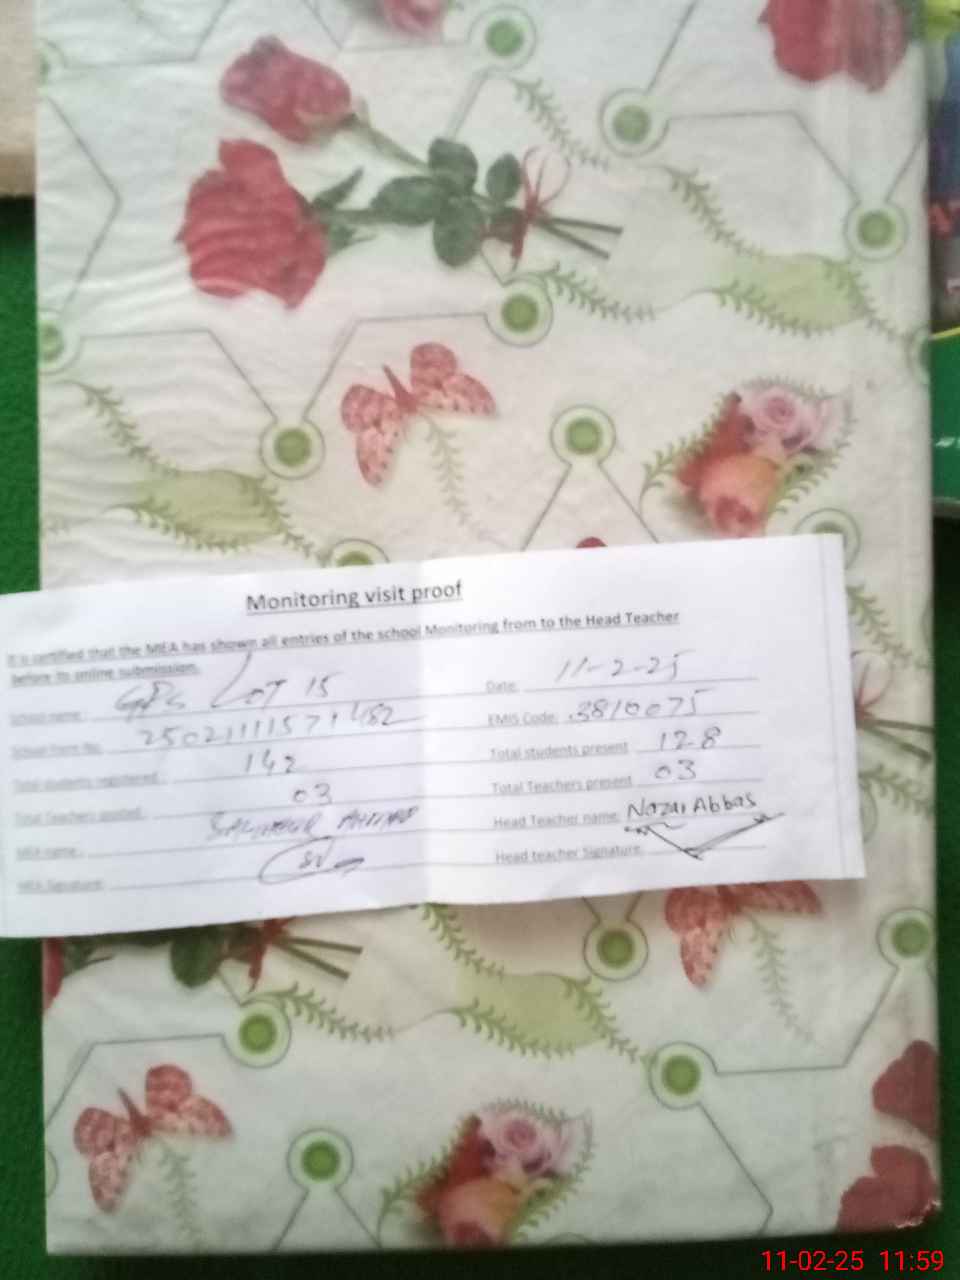 Monitoring visit proof
It is certified that the MEA has shown all entries of the school Monitoring from to the Head Teacher
before its online submission.
School name: GPS LOT 15 Date: 11-2-25
School Form No. 25021111571482 EMIS Code: 3810075
Total students registered 142 Total students present 128
Total Teachers posted: 03 Total Teachers present 03
MEA name: Head Teacher name: Nazar Abbas
MEA Signature: Head teacher Signature:
11-02-25 11:59